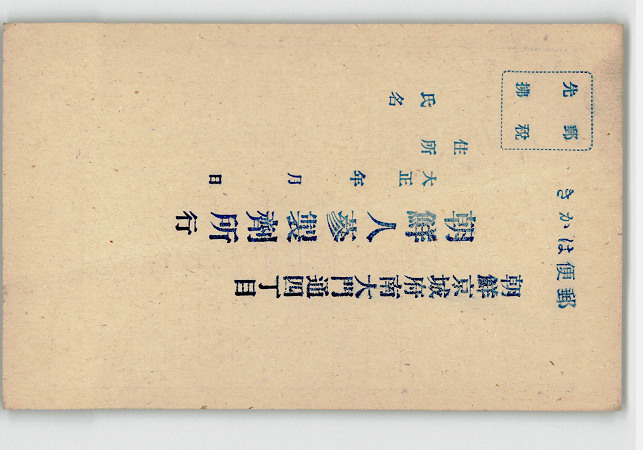 郵便はかき
郵税
先拂
朝鮮京城府南大門通四丁目
朝鮮人蔘製劑所行
大正 年 月 日
住所
氏名